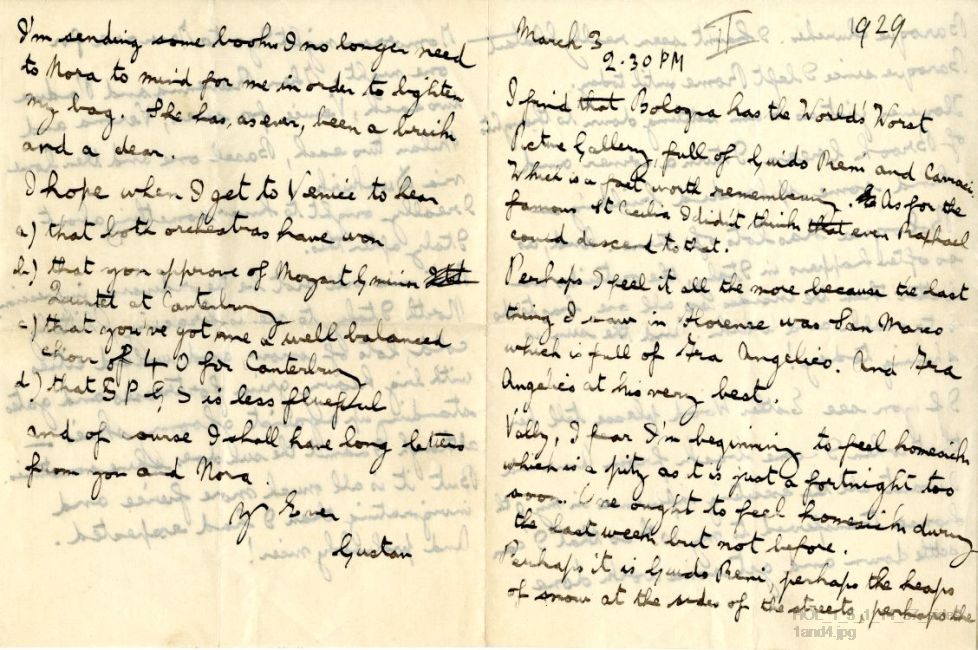 I'm sending some books I no longer need
to Nora to mind for me in order to lighten
my bag. She has, as ever, been a brick
and a dear.
I hope when I get to Venice to hear
a) that both orchestras have won
b) that you approve of Mozart G minor
Quintet at Canterbury
c) that you've got me a well balanced
choir of 40 for Canterbury
d) that S P G S is less fluefful
and of course I shall have long letters
from you and Nora.
Yr Ever
Gustav
March 3 II 1929
2.30 PM
I find that Bologna has the World's Worst
Picture Gallery, full of Guido Reni and Carracci
Which is a fact worth remembering. As for the
famous St Cecilia I didn't think that even Raphael
could descend to that.
Perhaps I feel it all the more because the last
thing I saw in Florence was San Marco
which is full of Fra Angelico. And Fra
Angelico at his very best.
Vally, I fear I'm beginning to feel homesick
which is a pity as it is just a fortnight too
soon. One ought to feel homesick during
the last week but not before.
Perhaps it is Guido Reni, perhaps the heaps
of snow at the sides of the streets, perhaps the
1and4.jpg